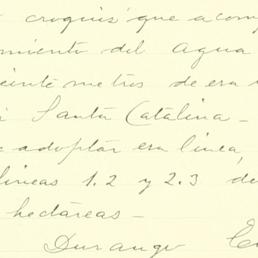 croquis que acom
miento del agua
veinte metros de esa
Santa Catalina -
adoptar esa linea
lineas 1.2 y 2.3 de
hectáreas -
Durango